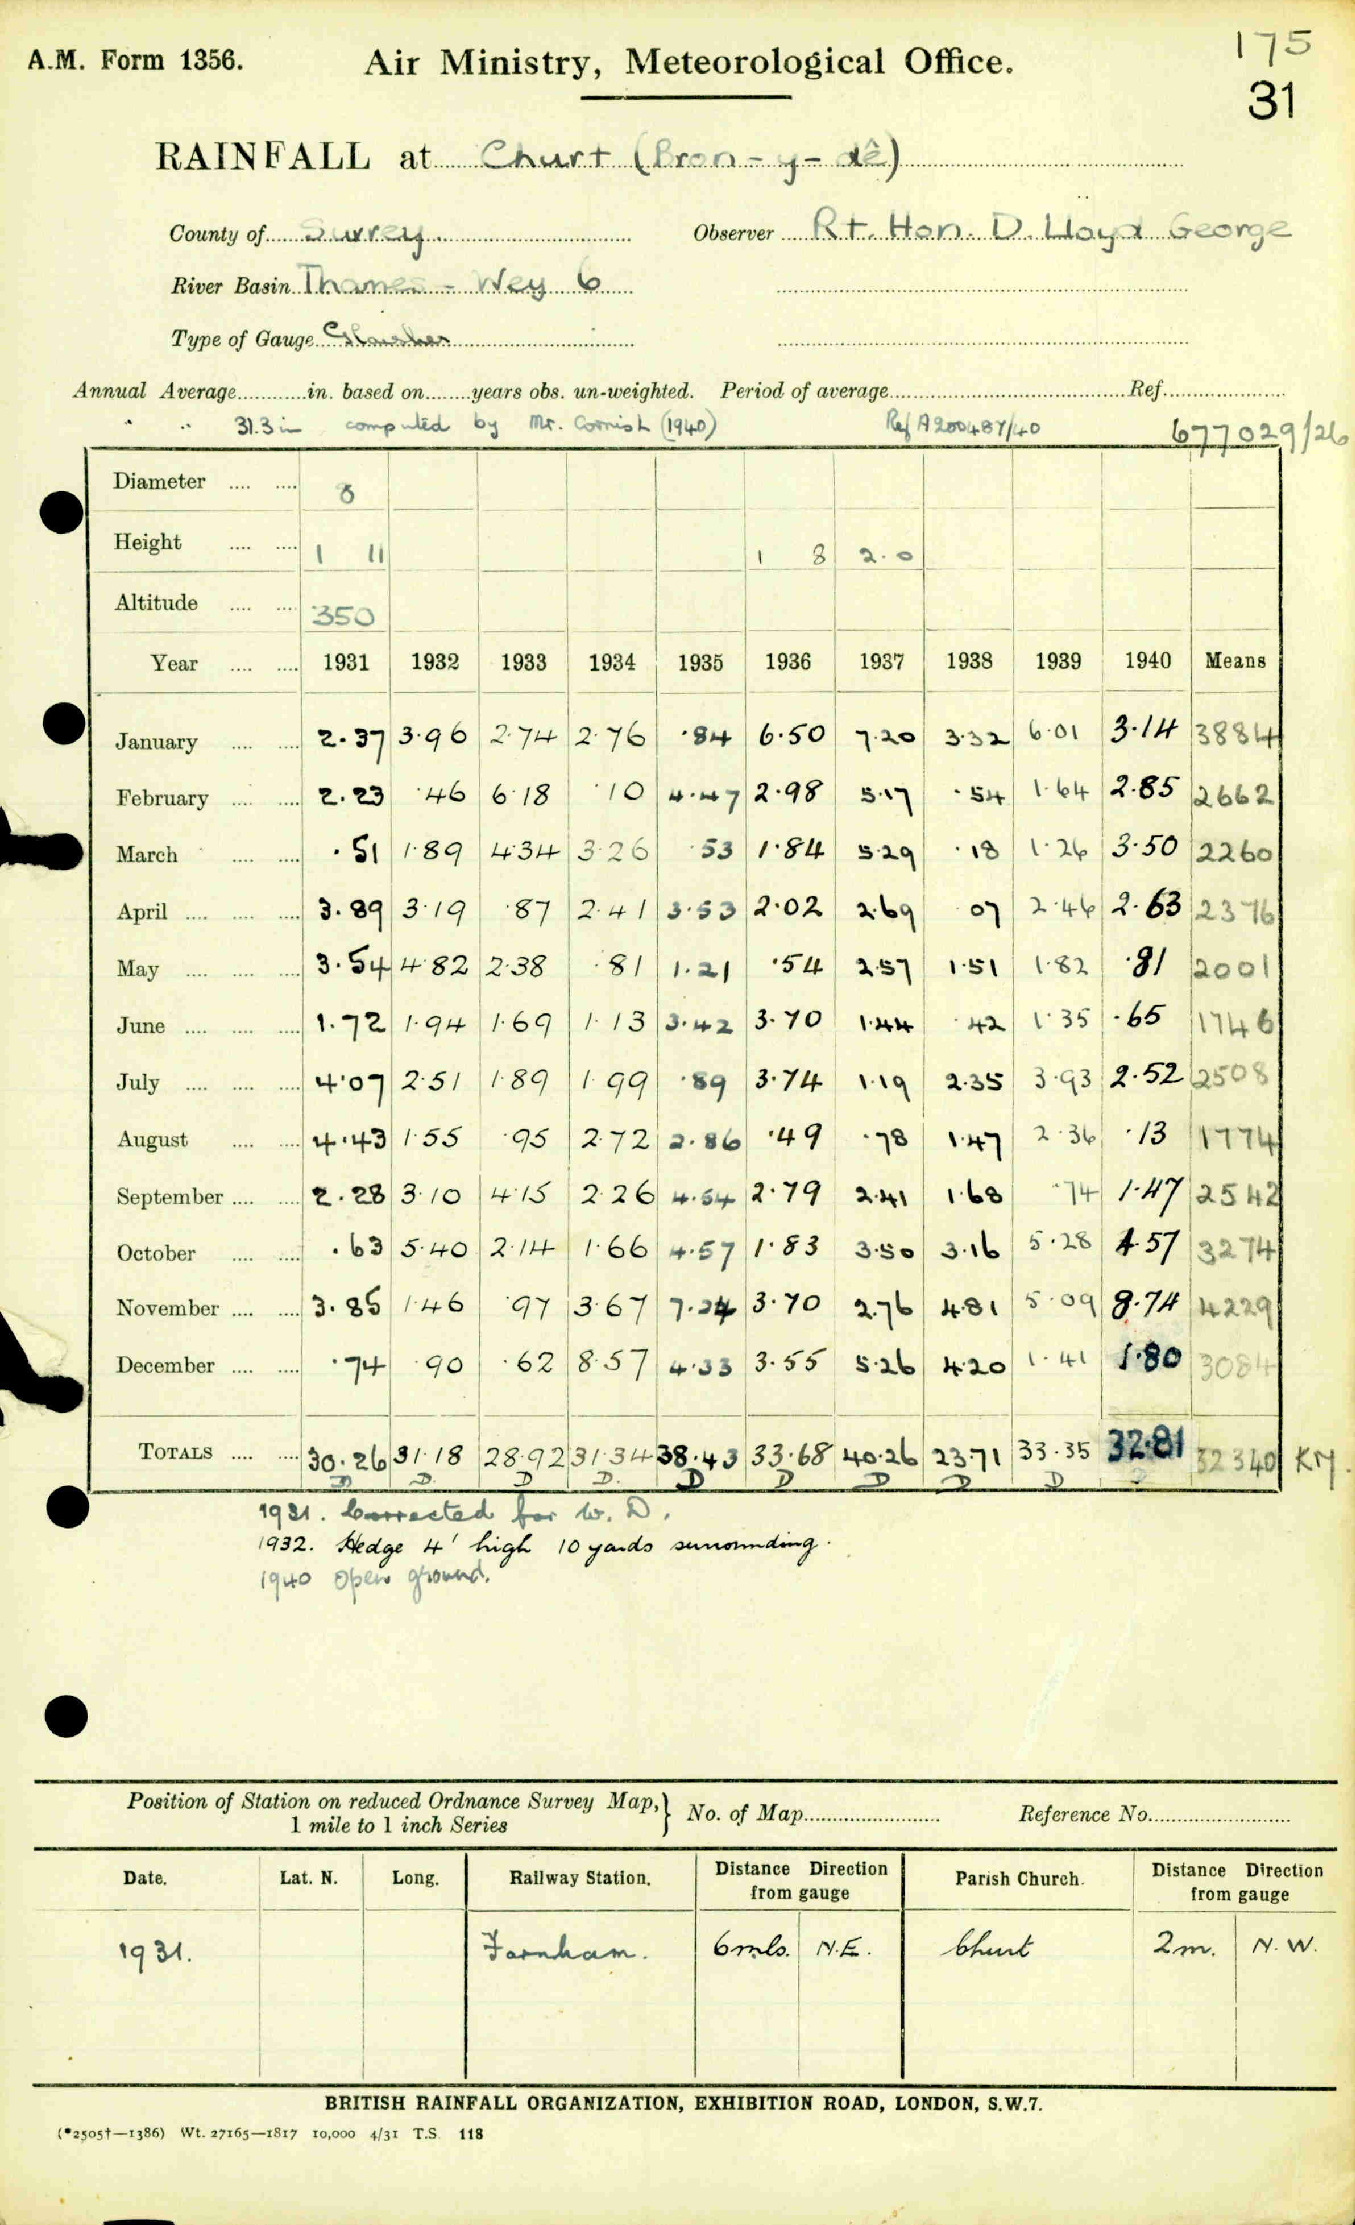 175
A.M. Form 1356. Air Ministry, Meteorological Office.
31
RAINFALL at Churt (Bron-y-dê)
County of Surrey. Observer Rt. Hon. D. Lloyd George
River Basin Thames - Wey 6
Type of Gauge Glaisher
Annual Average in. based on years obs. un-weighted. Period of average Ref.
" " 31.3 in computed by Mr. Cornish (1940) Ref A200487/40 677029/26
Diameter 8
Height 1 11 1 8 2.0
Altitude 350
Year 1931 1932 1933 1934 1935 1936 1937 1938 1939 1940 Means
January 2.37 3.96 2.74 2.76 .84 6.50 7.20 3.32 6.01 3.14 3884
February 2.23 .46 6.18 .10 4.47 2.98 5.17 .54 1.64 2.85 2662
March .51 1.89 4.34 3.26 .53 1.84 5.29 .18 1.26 3.50 2260
April 3.89 3.19 .87 2.41 3.53 2.02 2.69 07 2.46 2.63 2376
May 3.54 4.82 2.38 .81 1.21 .54 2.57 1.51 1.82 .81 2001
June 1.72 1.94 1.69 1.13 3.42 3.70 1.44 .42 1.35 .65 1746
July 4.07 2.51 1.89 1.99 .89 3.74 1.19 2.35 3.93 2.52 2508
August 4.43 1.55 .95 2.72 2.86 .49 .78 1.47 2.36 .13 1774
September 2.28 3.10 4.15 2.26 4.54 2.79 2.41 1.68 .74 1.47 2542
October .63 5.40 2.14 1.66 4.57 1.83 3.50 3.16 5.28 4.57 3274
November 3.85 1.46 .97 3.67 7.24 3.70 2.76 4.81 5.09 8.74 4229
December .74 .90 .62 8.57 4.33 3.55 5.26 4.20 1.41 1.80 3084
TOTALS 30.26 31.18 28.92 31.34 38.43 33.68 40.26 23.71 33.35 32.81 32340 KM.
D D D D. D D D D D D
1931. Corrected for W. D.
1932. Hedge 4' high 10 yards surrounding.
1940 Open ground.
Position of Station on reduced Ordnance Survey Map, 1 mile to 1 inch Series } No. of Map Reference No.
Date. Lat. N. Long. Railway Station. Distance Direction from gauge Parish Church. Distance Direction from gauge
1931. Farnham. 6 mls. N.E. Churt 2 m. N.W.
BRITISH RAINFALL ORGANIZATION, EXHIBITION ROAD, LONDON, S.W.7.
(*2505†—1386) Wt. 27165—1817 10,000 4/31 T.S. 118